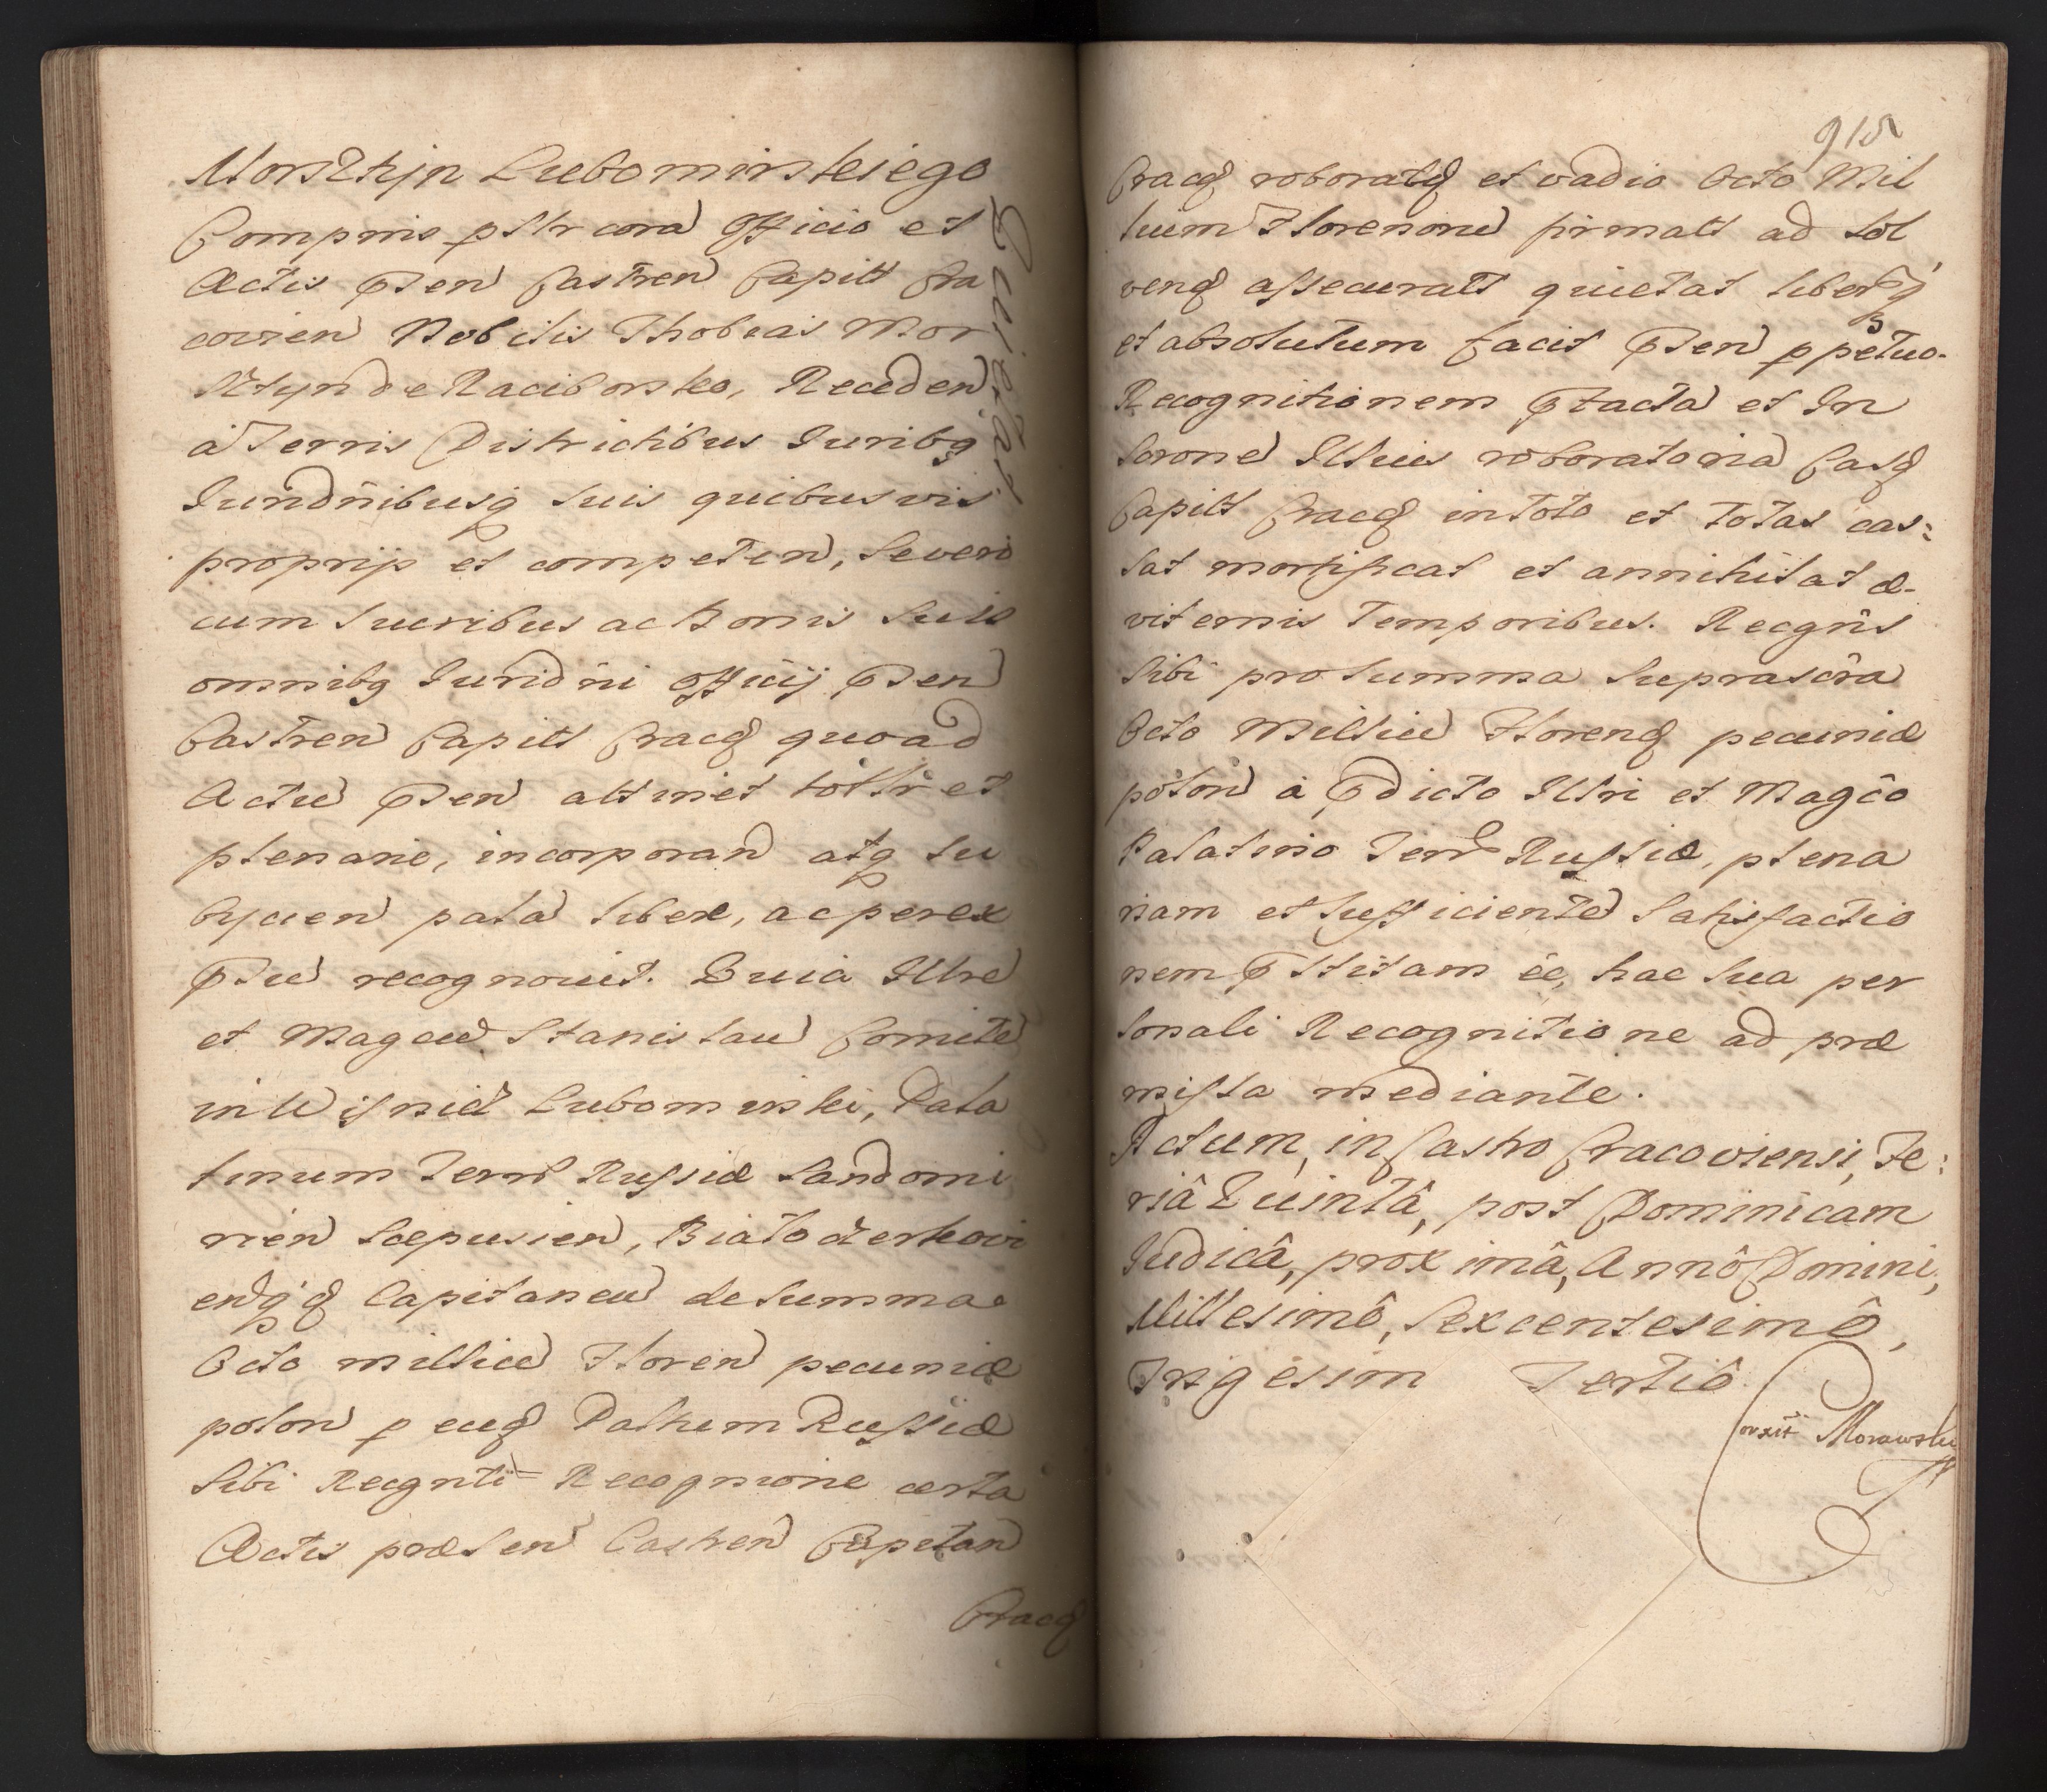 Morsztyn Lubomirskiego
Comprns pslr corā Officio et
Actis Pñen Castren Capitt Cra
covien Nobilis Thobias Mor
sztyn de Raciborsko, Receden
à Terris Districtibus Juribq
Jurisdnibusq suis quibusvis
proprijs et competen, Seveni
cum sucribus ac bonis suis
omnibq Jurisdni Officij Pñen
Castren Capitt Cracq quoad
Actū Pñen attinet tottr et
plenarie, incorporan atq su
bycien palā libere, ac perex
Pñū recognovit. Quia Illre
et Magcū Stanislaū Comitē
in Wisnicz Lubomirski, Pala
tinum Terrr Russiæ Sandomi
rien Scepusien, Białocerkovi
enqq Capitaneū de summa
Octo milliū Floren pecuniæ
polon p eūq Palnum Russiæ
Sibi Recgnti Recognione certa
Actis præsen Castren Capitan
Cracq
Quietat
915
Cracq roboratq et vadio Octo Mil
lium Florenorū firmatt ad sol
venq assecuratt quietat liberq
et absolutum facit Pñen ppetuo.
Recognitionem Ptactā et In
Scrone Illius roboratoriā Casq
Capitt Cracq in toto et totas cas:
sat mortificat et annihilat æ-
viternis Temporibus. Recgnś
Sibi pro summa suprascra
Octo Milliū Florenq pecuniæ
polon à Pdicto Illri et Magco
Palatino Terr Russiæ, plena
riam et sufficientē Satisfactio
nem Pstitam ee, hac sua per
sonali Recognitione ad præ
missa mediante.
Actum, in Castro Cracoviensi, Fe:
riâ Quintâ, post Dominicam
Judicâ, proximâ, Annô Domini,
Millesimô, Sexcentesimô,
Trigesim Tertiô.
Corxit Morawski